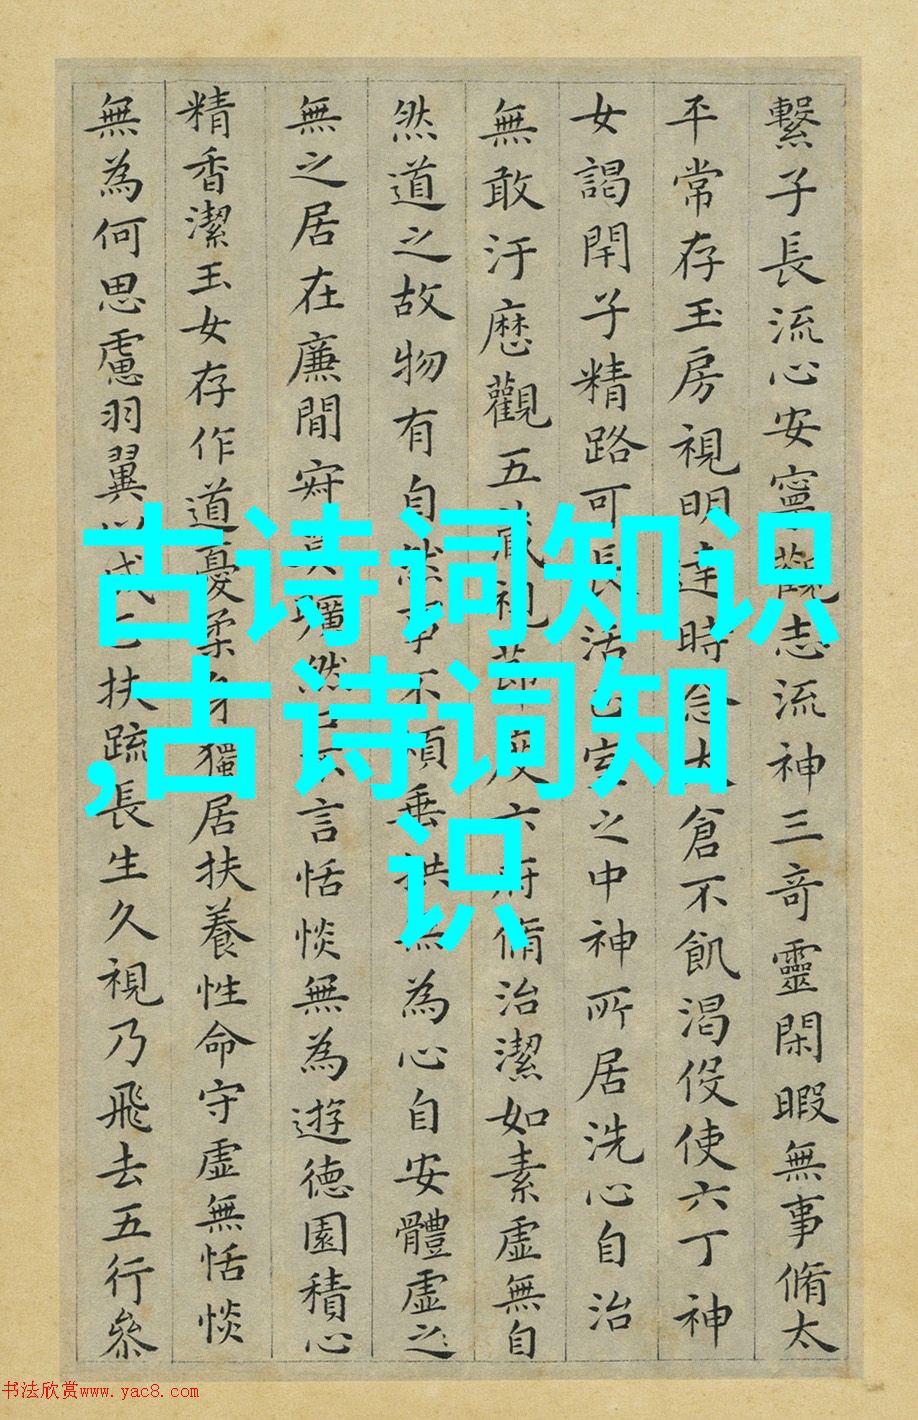 繫子長流心安寧觀志流神三竒靈閑暇無事脩太
平常存玉房視明達時念太倉不飢渴役使六丁神
女謁閇子精路可長活正室之中神所居洗心自治
無敢汙歷觀五藏視節度六府脩治潔如素虛無自
然道之故物有自然事不煩垂拱無為心自安體虛之
無之居在廉間寂莫曠然口不言恬惔無為遊德園積心
精香潔玉女存作道憂柔身獨居扶養性命守虛無恬惔
無為何思慮羽翼以成正扶疏長生久視乃飛去五行參
古诗词知识
,古诗词知
识
书法欣赏www.yac8.com